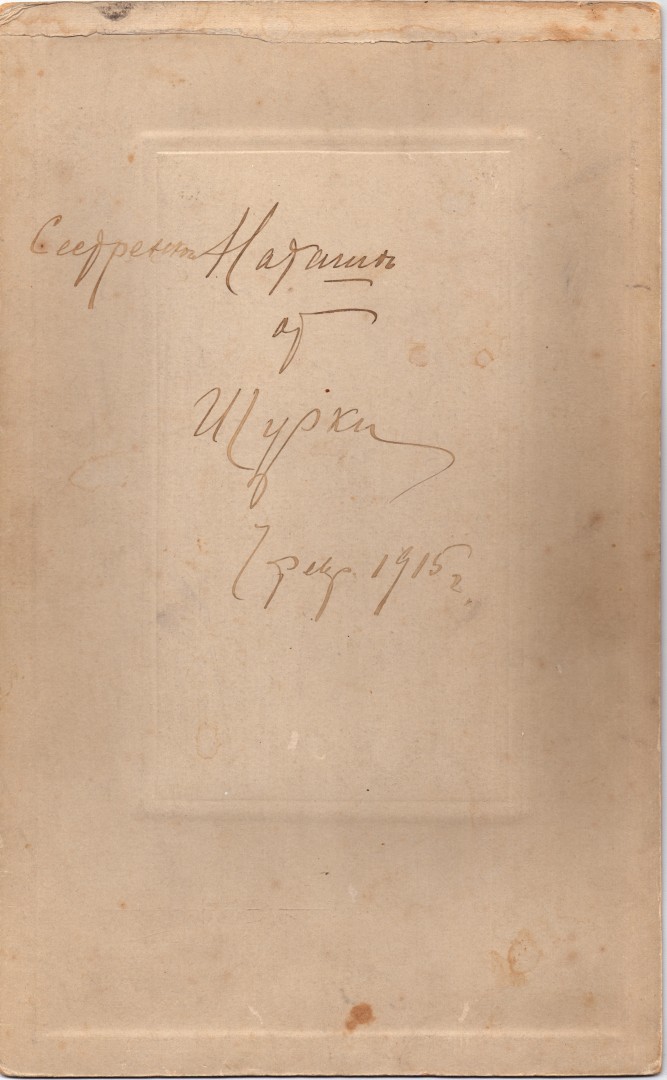 Сестренкѣ Наташѣ
от
Шурки
7 февр. 1915 г.